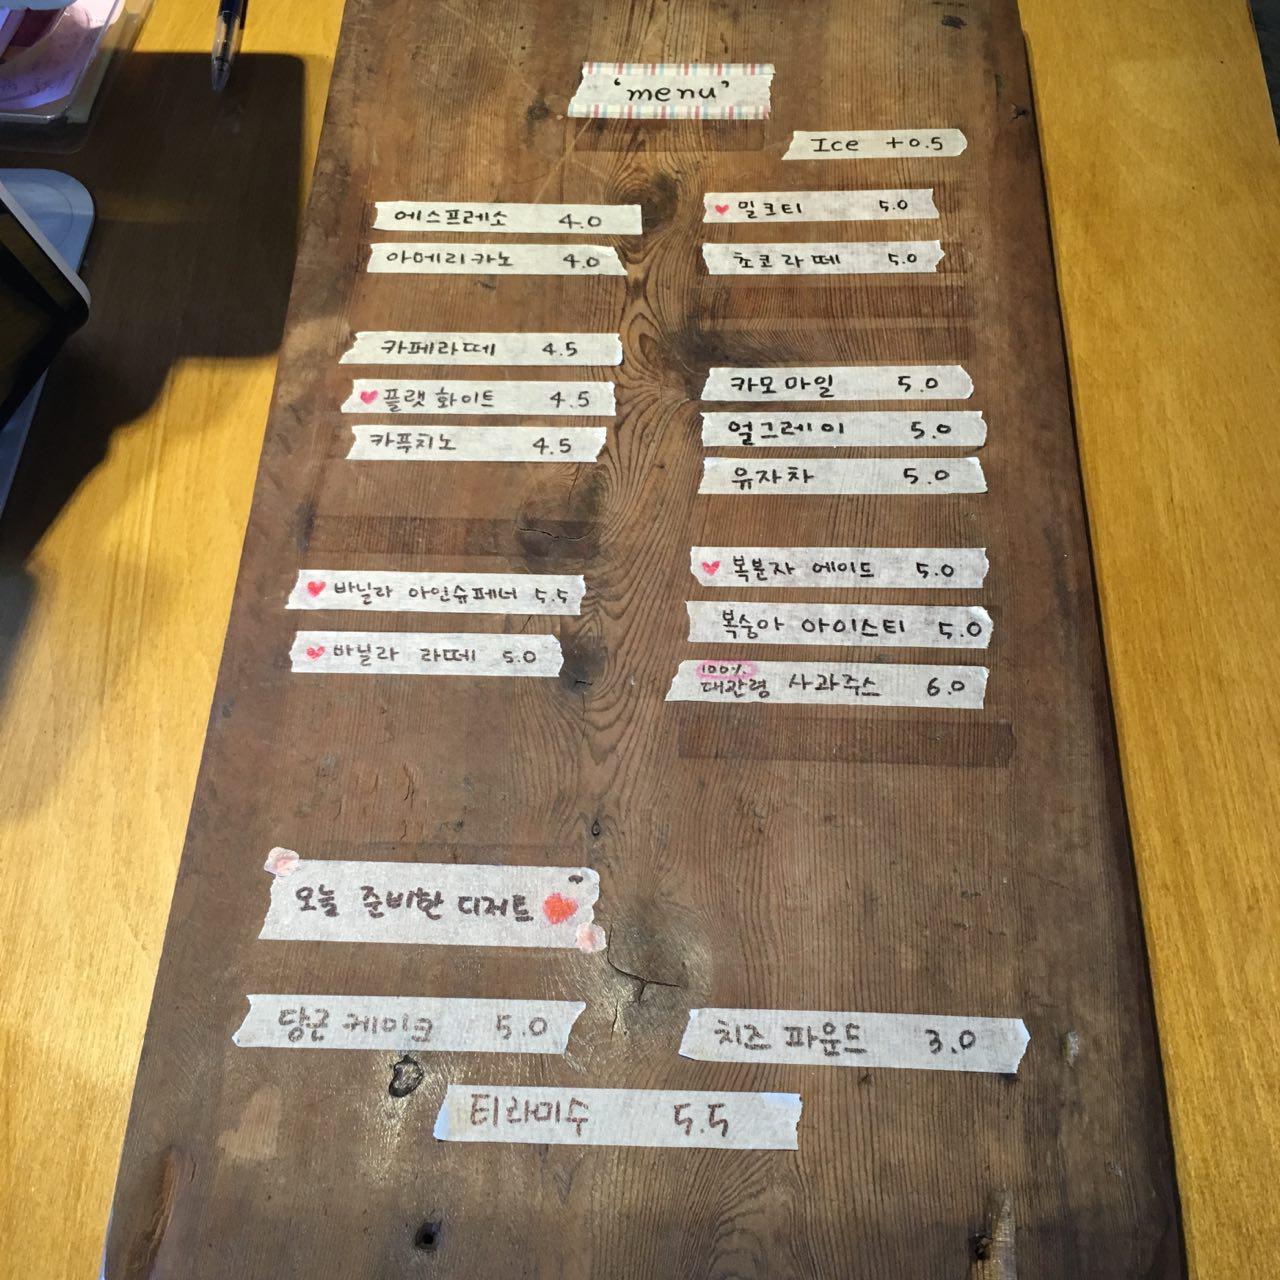 'menu'
Ice +0.5
에스프레소 4.0
아메리카노 4.0
카페라떼 4.5
플랫 화이트 4.5
카푸치노 4.5
바닐라 아인슈페너 5.5
바닐라 라떼 5.0
밀크티 5.0
쵸코라떼 5.0
카모마일 5.0
얼그레이 5.0
유자차 5.0
복분자 에이드 5.0
복숭아 아이스티 5.0
100%
대관령 사과주스 6.0
오늘 준비한 디저트
당근 케이크 5.0
치즈 파운드 3.0
티라미수 5.5